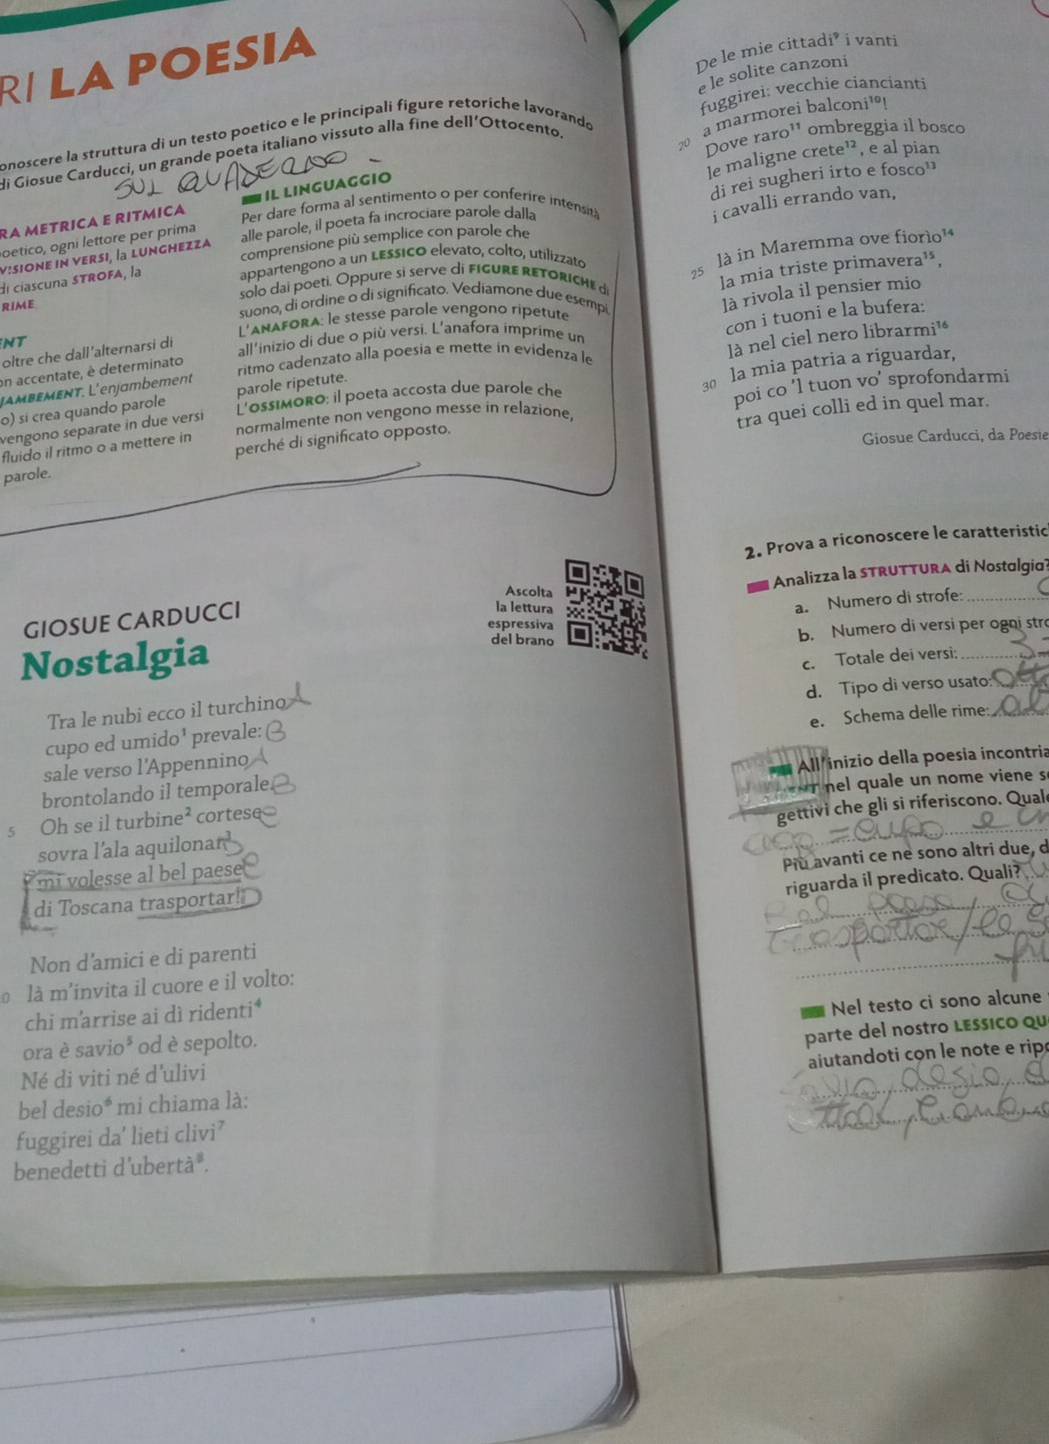 RI LA POESIA
onoscere la struttura di un testo poetico e le principali figure retoriche lavorando
di Giosue Carducci, un grande poeta italiano vissuto alla fine dell'Ottocento.
SUL QUADERNO
RA METRICA E RITMICA
poetico, ogni lettore per prima
VISIONE IN VERSI, la LUNGHEZZA
di ciascuna STROFA, la
RIME
NT
oltre che dall'alternarsi di
on accentate, è determinato
JAMBEMENT. L'enjambement
o) si crea quando parole
vengono separate in due versi
fluido il ritmo o a mettere in
parole.
IL LINGUAGGIO
Per dare forma al sentimento o per conferire intensità
alle parole, il poeta fa incrociare parole dalla
comprensione più semplice con parole che
appartengono a un LESSICO elevato, colto, utilizzato
solo dai poeti. Oppure si serve di FIGURE RETORICHE di
suono, di ordine o di significato. Vediamone due esempi.
L'ANAFORA: le stesse parole vengono ripetute
all'inizio di due o più versi. L'anafora imprime un
ritmo cadenzato alla poesia e mette in evidenza le
parole ripetute.
L'OSSIMORO: il poeta accosta due parole che
normalmente non vengono messe in relazione,
perché di significato opposto.
GIOSUE CARDUCCI
Nostalgia
Ascolta
la lettura
espressiva
del brano
Tra le nubi ecco il turchino A
cupo ed umido¹ prevale: B
sale verso l'Appennino A
brontolando il temporale. B
5 Oh se il turbine² cortese C
sovra l'ala aquilonar³
mi volesse al bel paese C
di Toscana trasportar! D
Non d'amici e di parenti
là m'invita il cuore e il volto:
chi m'arrise ai dì ridenti⁴
ora è savio⁵ od è sepolto.
Né di viti né d'ulivi
bel desio⁶ mi chiama là:
fuggirei da' lieti clivi⁷
benedetti d'ubertà⁸.
De le mie cittadi⁹ i vanti
e le solite canzoni
fuggirei: vecchie ciancianti
20 a marmorei balconi¹⁰!
Dove raro¹¹ ombreggia il bosco
le maligne crete¹², e al pian
di rei sugheri irto e fosco¹³
i cavalli errando van,
25 là in Maremma ove fiorìo¹⁴
la mia triste primavera¹⁵,
là rivola il pensier mio
con i tuoni e la bufera:
là nel ciel nero librarmi¹⁶
30 la mia patria a riguardar,
poi co 'l tuon vo' sprofondarmi
tra quei colli ed in quel mar.
Giosue Carducci, da Poesie
2. Prova a riconoscere le caratteristic
Analizza la STRUTTURA di Nostalgia?
a. Numero di strofe:
b. Numero di versi per ogni stro
c. Totale dei versi:
d. Tipo di verso usato: Otto
e. Schema delle rime:
All'inizio della poesia incontria
nel quale un nome viene s
gettivi che gli si riferiscono. Quale
= cupo e
Più avanti ce ne sono altri due, d
riguarda il predicato. Quali?
Bel paese
trasportar/
Nel testo ci sono alcune
parte del nostro LESSICO QU
aiutandoti con le note e ripo
desio,